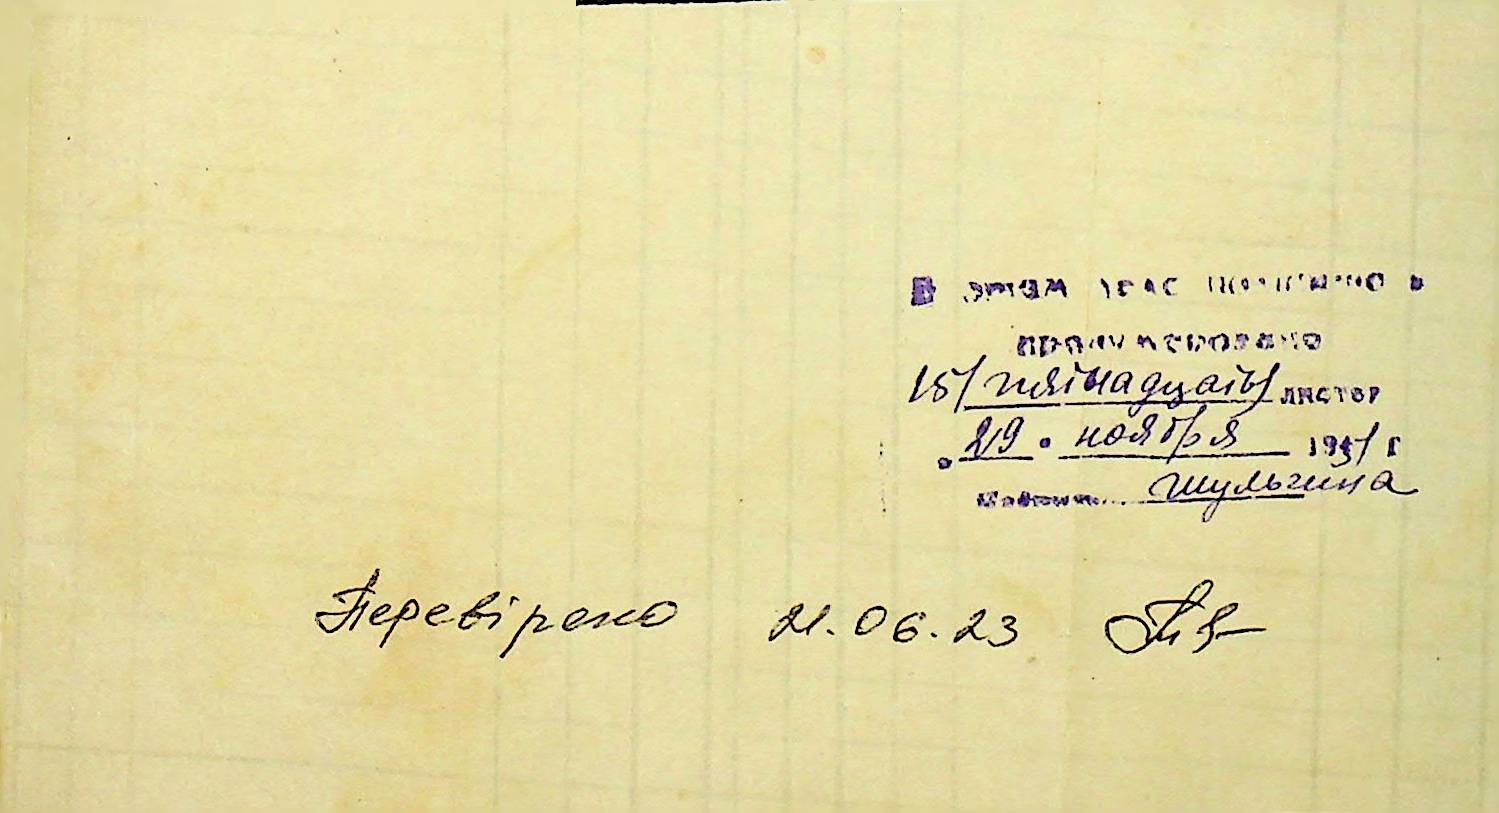 В этом деле подшито и
пронумеровано
15/ пятнадцать/ листов
"29" ноября 195/ г
Шульгина
Перевірено 21.06.23